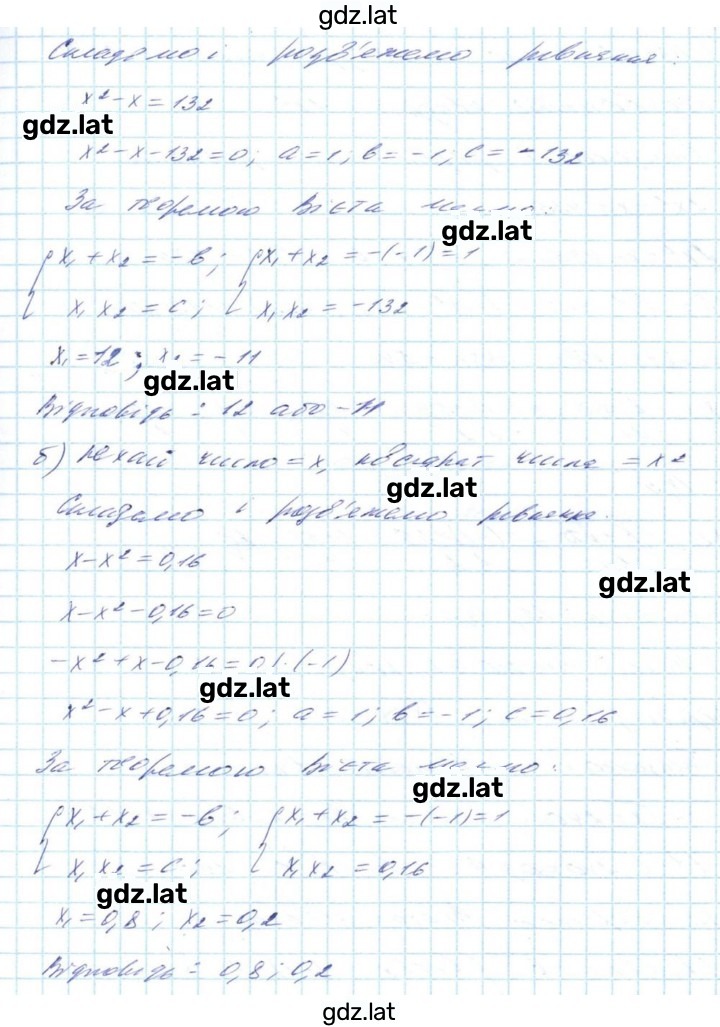 gdz.lat
Складемо і розв'яжемо рівняння:
x² - x = 132
gdz.lat
x² - x - 132 = 0; a = 1; b = -1; c = -132
За теоремою Вієта маємо:
gdz.lat
{ x₁ + x₂ = -b; { x₁ + x₂ = -(-1) = 1
x₁ x₂ = c; x₁ x₂ = -132
x₁ = 12; x₂ = -11
gdz.lat
Відповідь: 12 або -11
б) Нехай число = x, квадрат числа = x²
gdz.lat
Складемо і розв'яжемо рівняння.
x - x² = 0,16
gdz.lat
x - x² - 0,16 = 0
-x² + x - 0,16 = 0 | · (-1)
gdz.lat
x² - x + 0,16 = 0; a = 1; b = -1; c = 0,16
За теоремою Вієта маємо:
gdz.lat
{ x₁ + x₂ = -b; { x₁ + x₂ = -(-1) = 1
x₁ x₂ = c; x₁ x₂ = 0,16
gdz.lat
x₁ = 0,8; x₂ = 0,2
Відповідь: 0,8; 0,2
gdz.lat